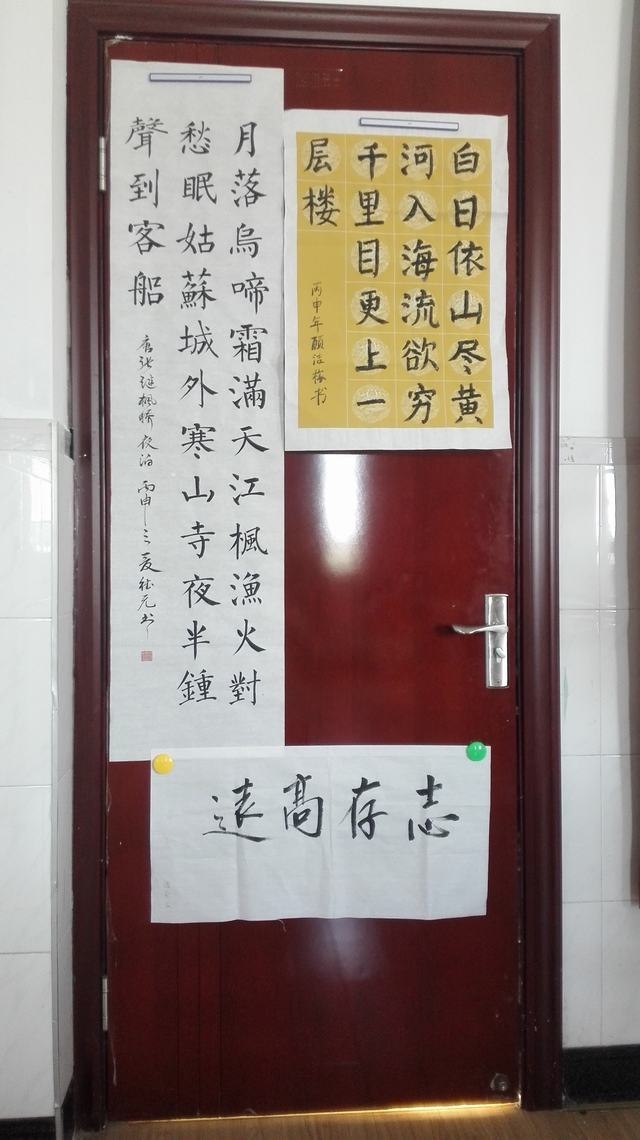 白日依山尽黄
河入海流欲穷
千里目更上一
层楼
丙申年顾书
月落烏啼霜滿天江楓漁火對
愁眠姑蘇城外寒山寺夜半鍾
聲到客船
唐张继楓桥夜泊 丙申之夏元书
志存高遠